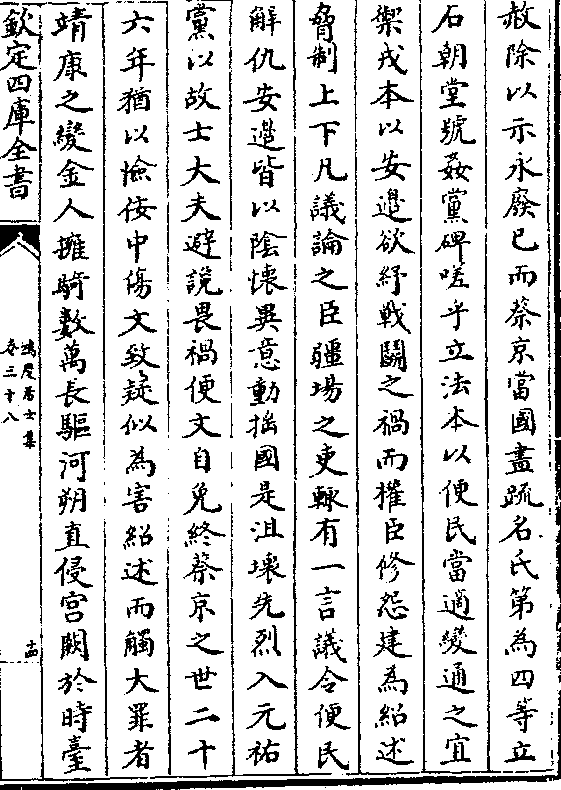 赦除以示永廢已而蔡京當國盡疏名氏第為四等立
石朝堂號姦黨碑嗟乎立法本以便民當適變通之宜
禦戎本以安邉欲紓戰鬭之禍而權臣修怨建為紹述
脅制上下凡議論之臣疆埸之吏輙有一言議令便民
解仇安邉皆以陰懷異意動揺國是沮壊先烈入元祐
黨以故士大夫避説畏禍便文自免終蔡京之世二十
六年猶以憸佞中傷文致疑似為害紹述而觸大罪者
靖康之變金人擁騎數萬長驅河朔直侵宫闕於時臺
欽定四庫全書
鴻慶居士集
卷三十八
十四